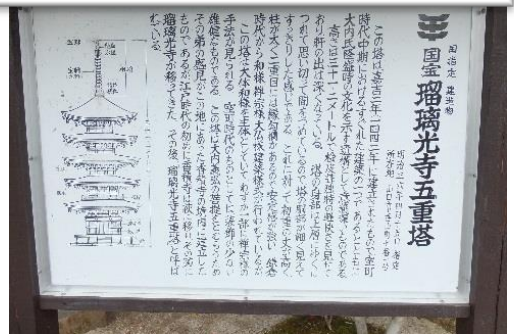 国指定 建造物
国宝 瑠璃光寺五重塔
明治三六年四月 指定
所在地 山口市
この塔は嘉吉二年(一四四二年)に建立されたもので室町
時代中期におけるすぐれた建築の一つであるとともに
大内氏隆盛時の文化を示す遺構として
高さは三十一・二メートルで桧皮葺独特の軽快さを見せて
おり軒の出は深くなっている。塔の身部は上層にゆくに
つれて思い切って間をつめているので塔の胴部が細く見えて
すっきりした感じである これに対って初重の丈が高く
柱が太く二重目には縁勾欄があるので安定感が強い 鎌倉
時代から和様 禅宗様 大仏様建築様式が行われているが
この塔は大体和様を主体としてわずかに一部に禅宗様の
手法が見られる。室町時代のものとしては装飾の少ない
雄健なものである。この塔は大内義弘の菩提をとむらうため
その弟の盛見がこの地にあった香積寺の境内に建立した
ものであるが江戸時代の初めに香積寺は萩へ移りその跡に
瑠璃光寺が移ってきた。その後、瑠璃光寺五重塔と呼ば
れている。